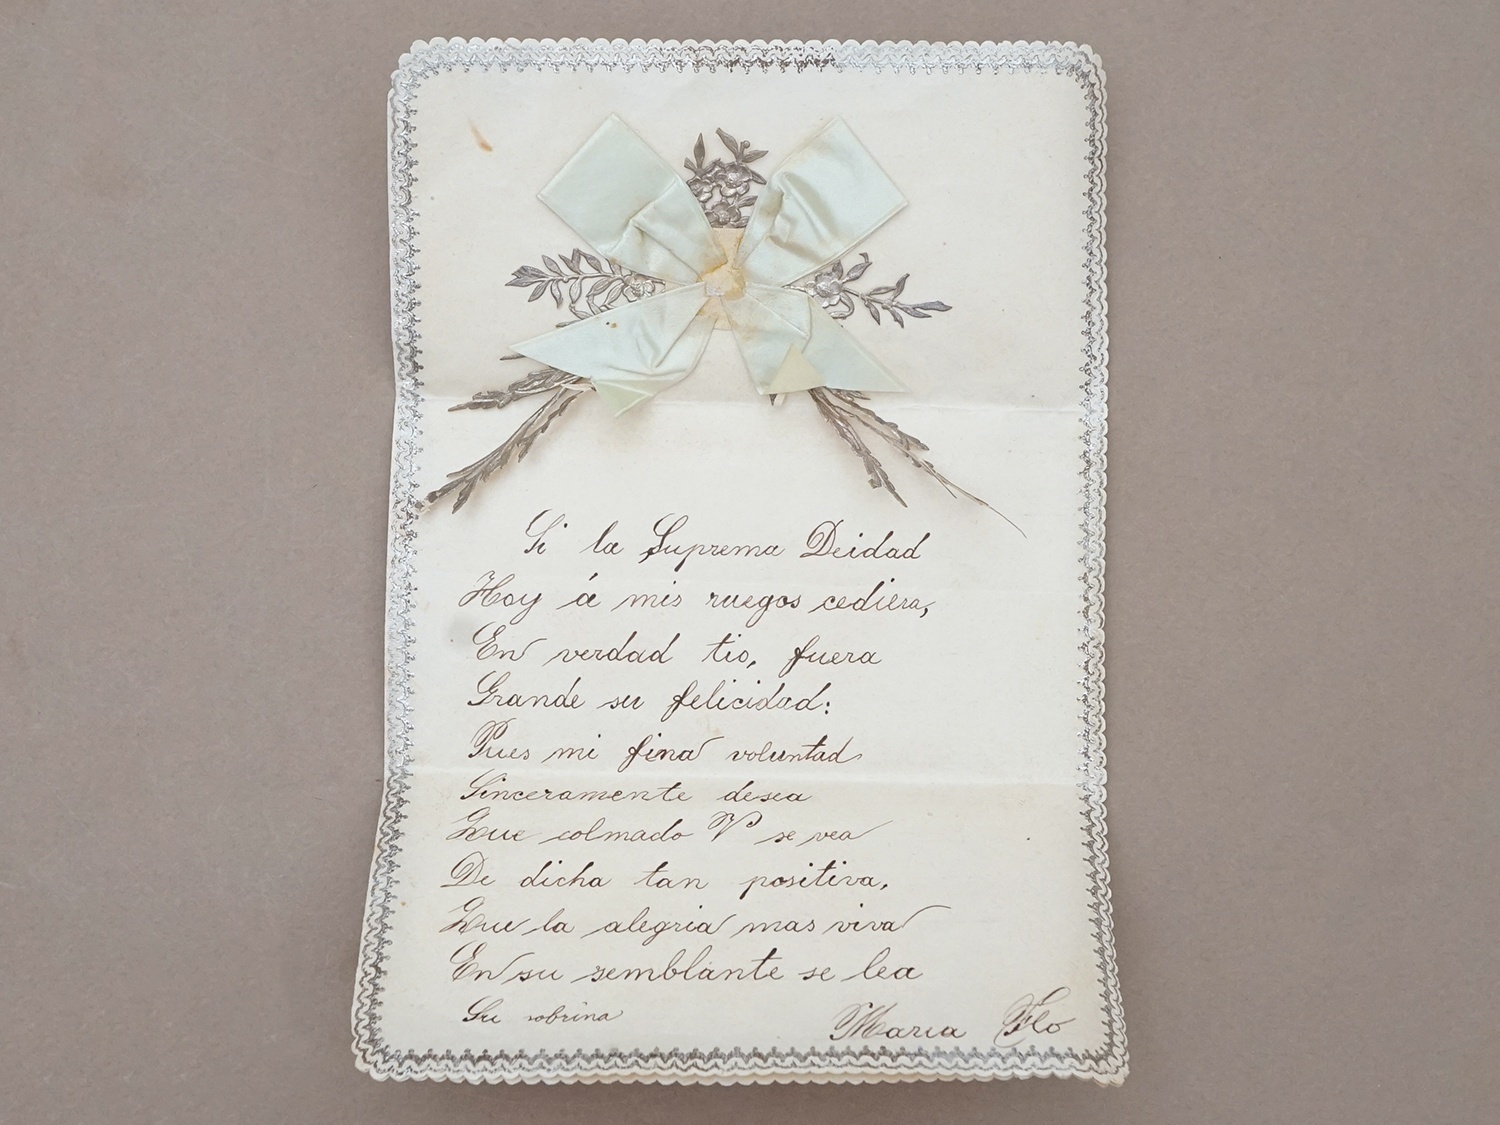 Si la Suprema Deidad
Hoy á mis ruegos cediera,
En verdad tio, fuera
Grande su felicidad:
Pues mi fina voluntad
Sinceramente desea
Que colmado V se vea
De dicha tan positiva,
Que la alegria mas viva
En su semblante se lea
Su sobrina Maria Flo